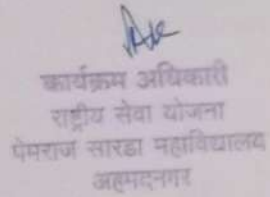 कार्यक्रम अधिकारी
राष्ट्रीय सेवा योजना
पेमराज सारडा महाविद्यालय
अहमदनगर